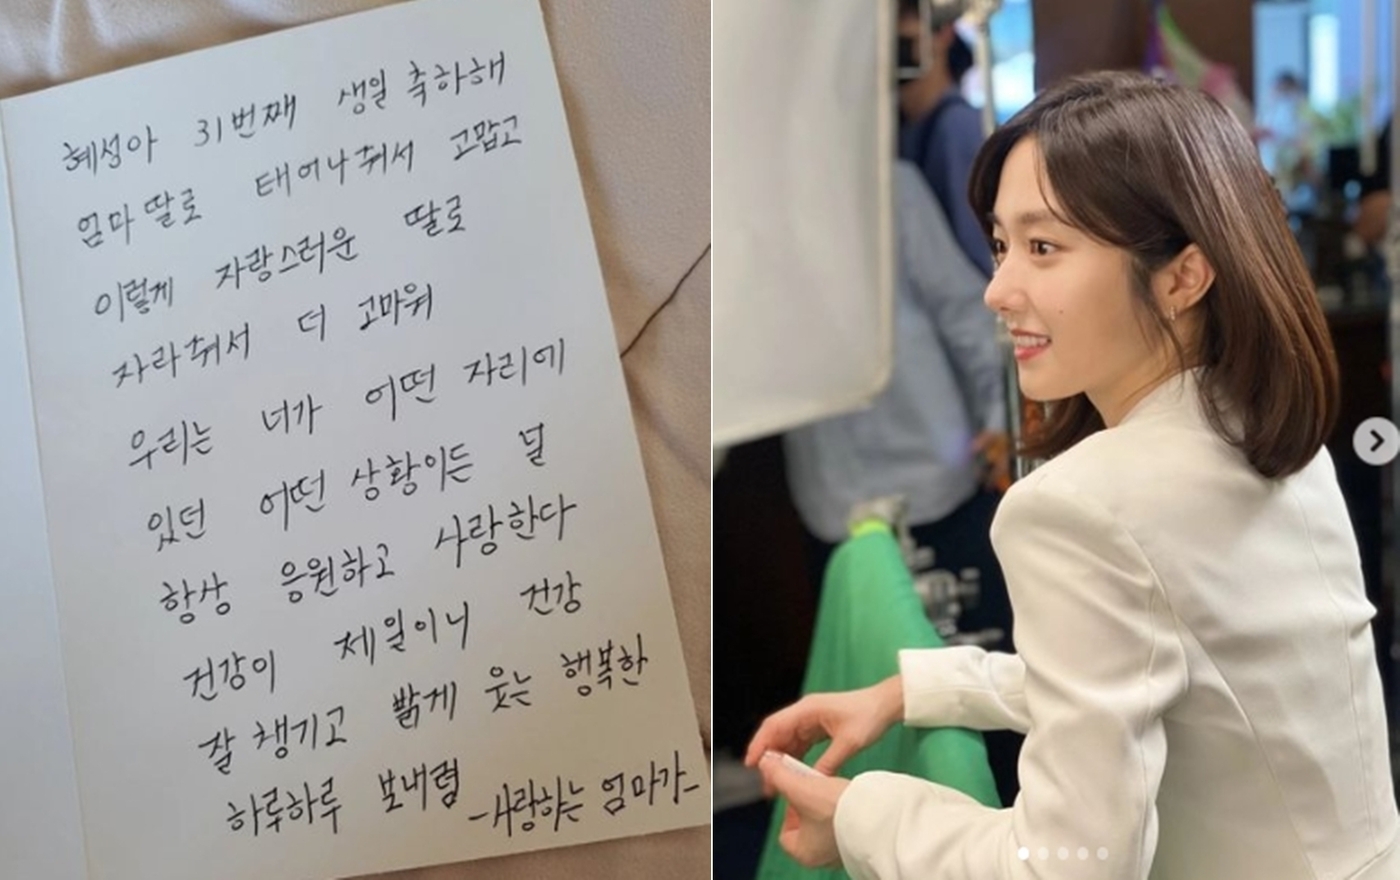 혜성아 31번째 생일 축하해
엄마 딸로 태어나줘서 고맙고
이렇게 자랑스러운 딸로
자라줘서 더 고마워
우리는 너가 어떤 자리에
있던 어떤 상황이든 널
항상 응원하고 사랑한다
건강이 제일이니 건강
잘 챙기고 밝게 웃는 행복한
하루하루 보내렴 -사랑하는 엄마가-